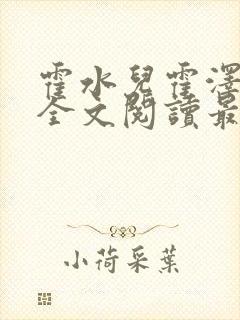 霍水兒霍澤
全文閱讀最
小荷采葉